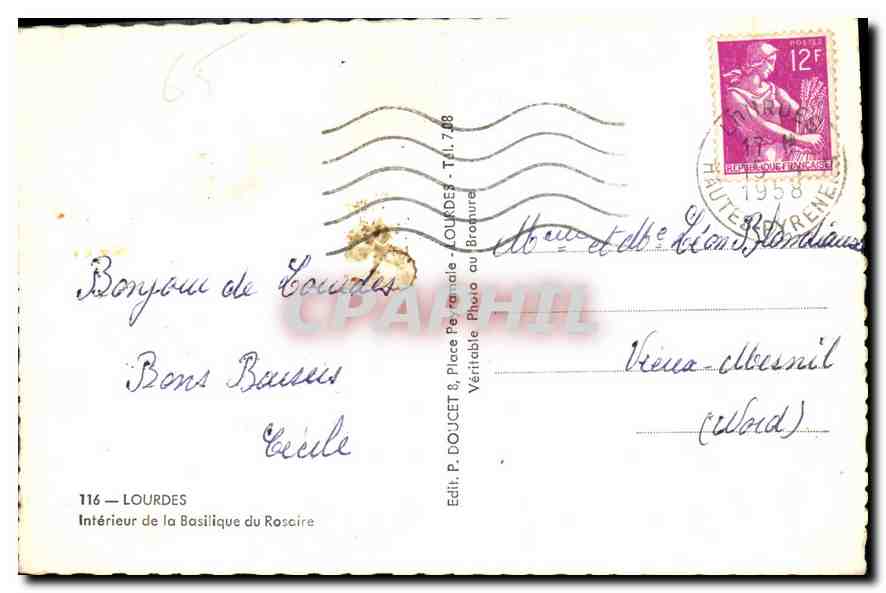 65
POSTES
12F
REPUBLIQUE FRANÇAISE
LOURDES
17 H
15
1958
HAUTES PYRENEES
Bonjour de Lourdes
Bons Baisers
Cécile
116 — LOURDES
Intérieur de la Basilique du Rosaire
Edit. P. DOUCET 8, Place Peyramale - LOURDES - Tél. 7.08
Véritable Photo au Bromure
CPAPHIL
et Mme Léon
Vieux-Mesnil
(Nord)